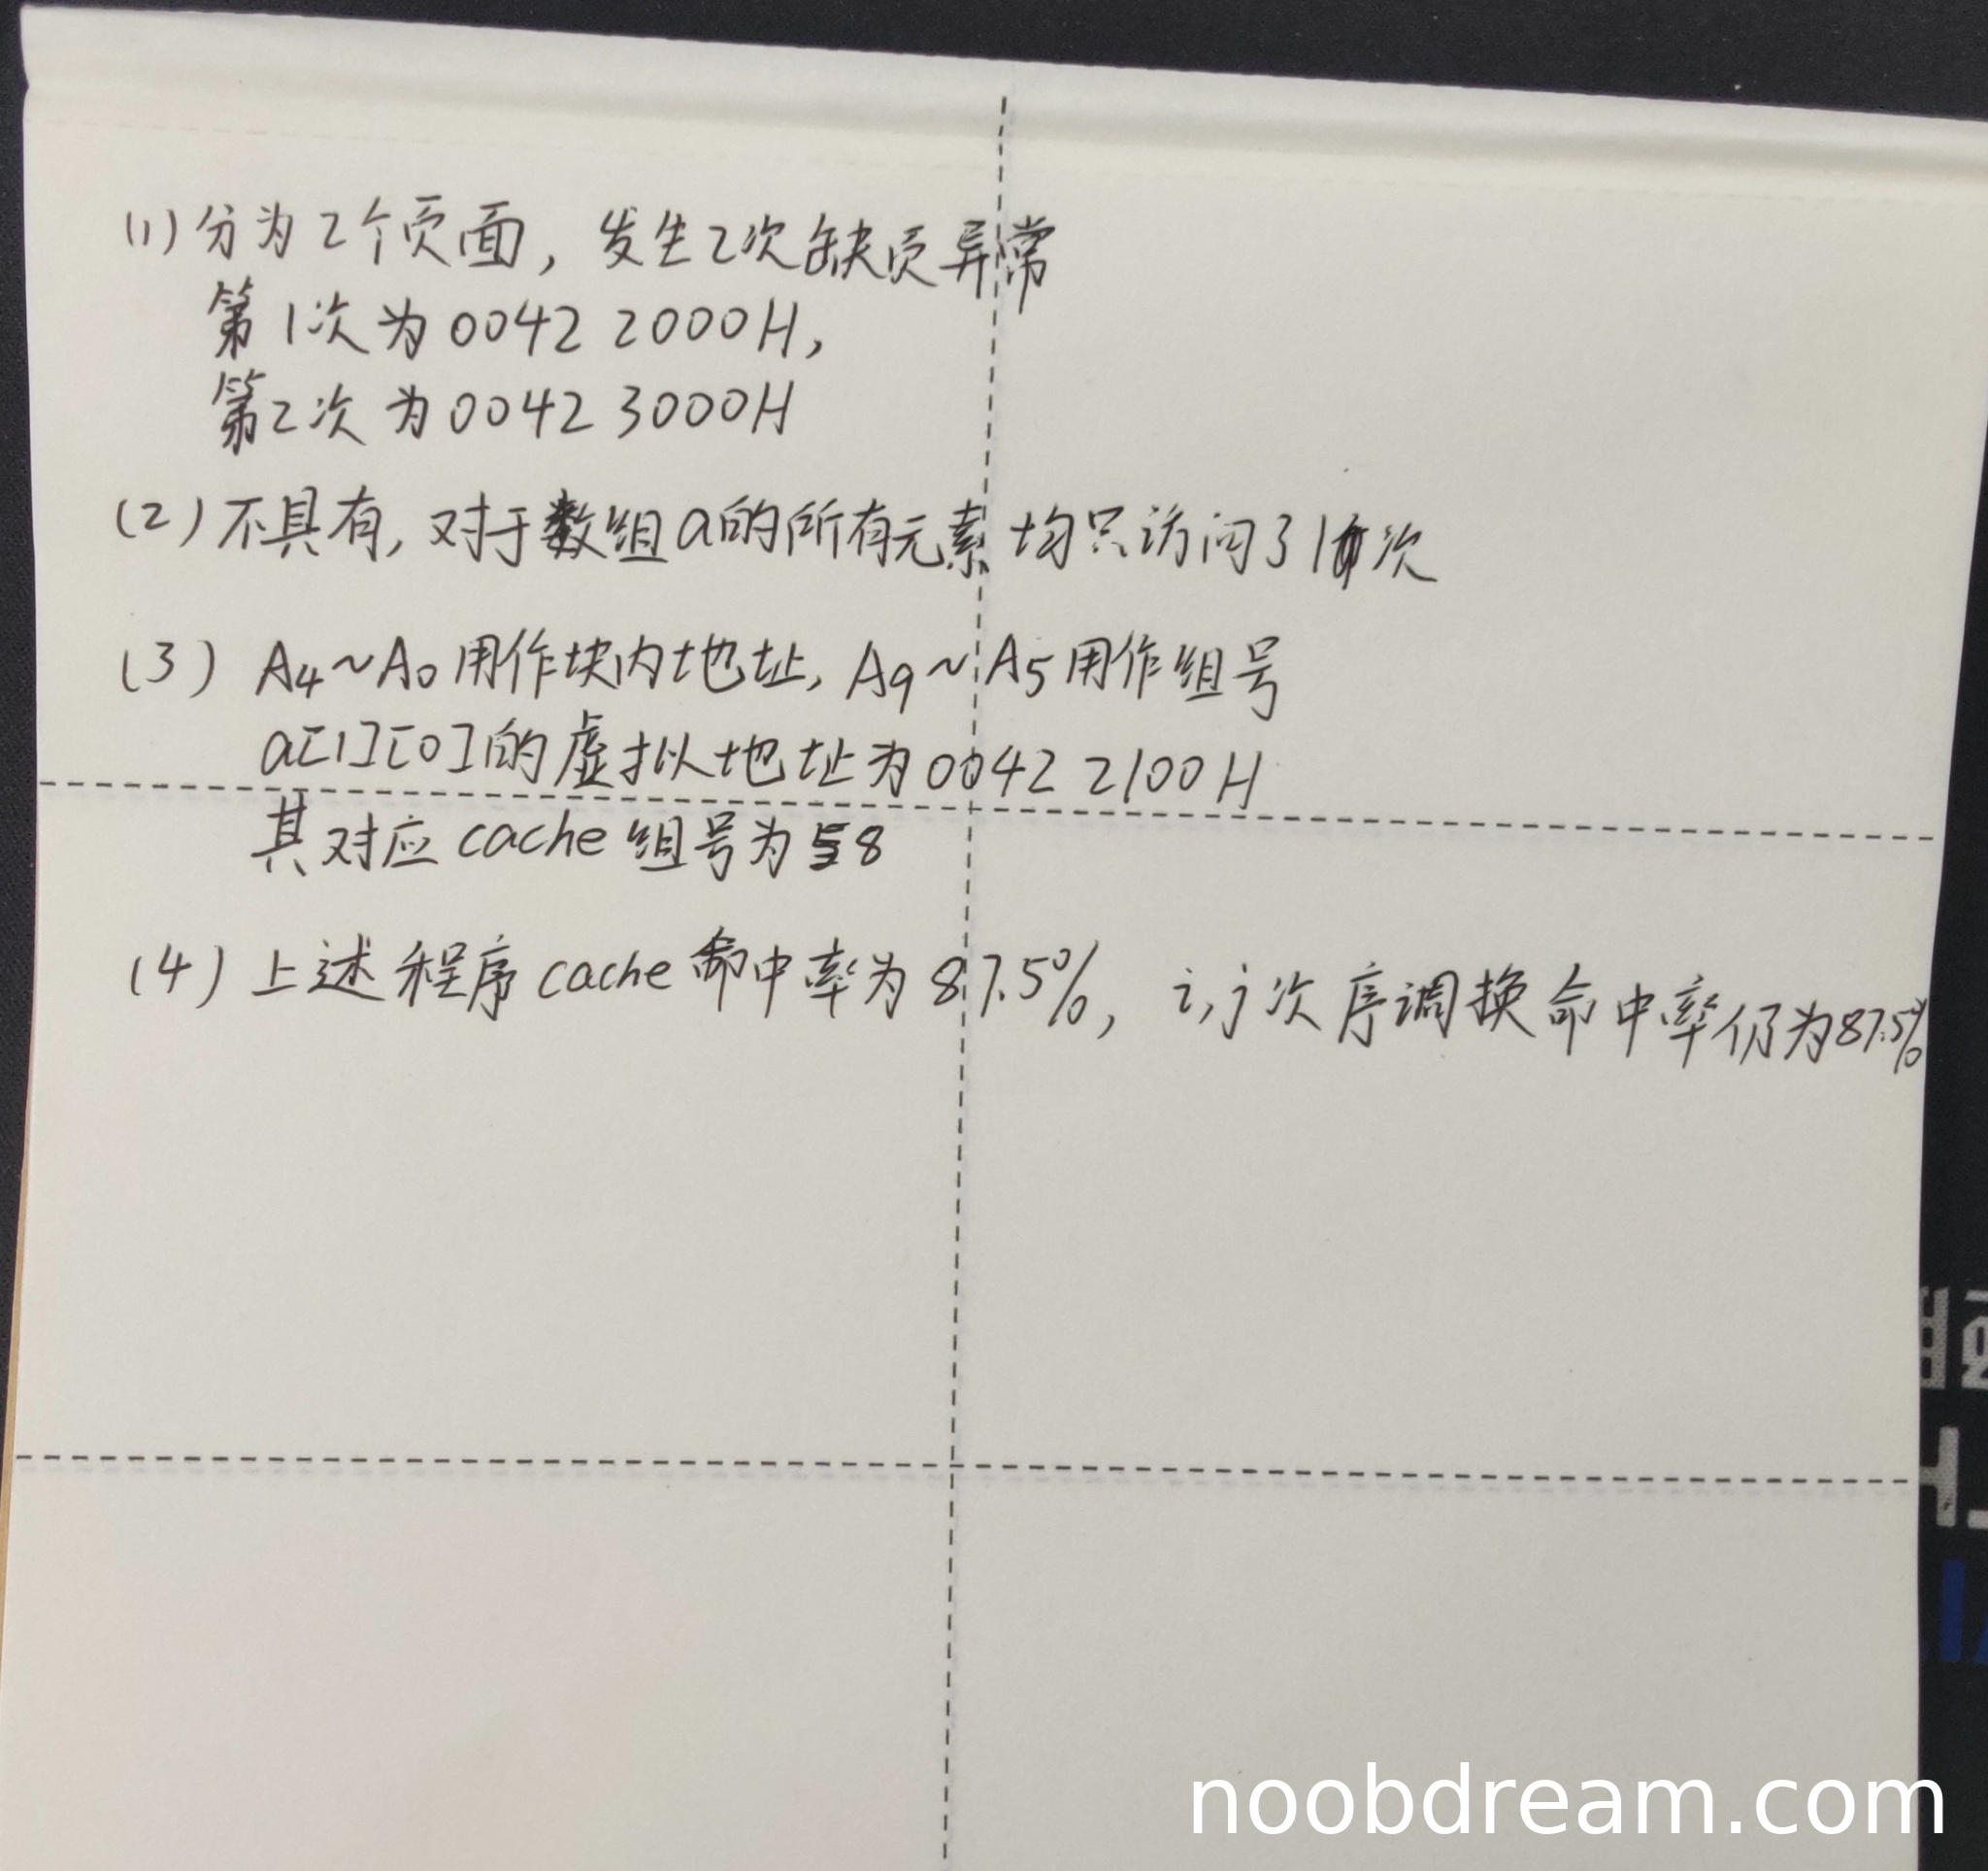 (1) 分为2个页面, 发生2次缺页异常
第1次为 0042 2000H,
第2次为 0042 3000H
(2) 不具有, 对于数组a的所有元素均只访问了1次
(3) A4~A0用作块内地址, A9~A5用作组号
a[1][0]的虚拟地址为 0042 2100H
其对应cache组号为8
(4) 上述程序cache命中率为87.5%, i,j次序调换命中率仍为87.5%
noobdream.com